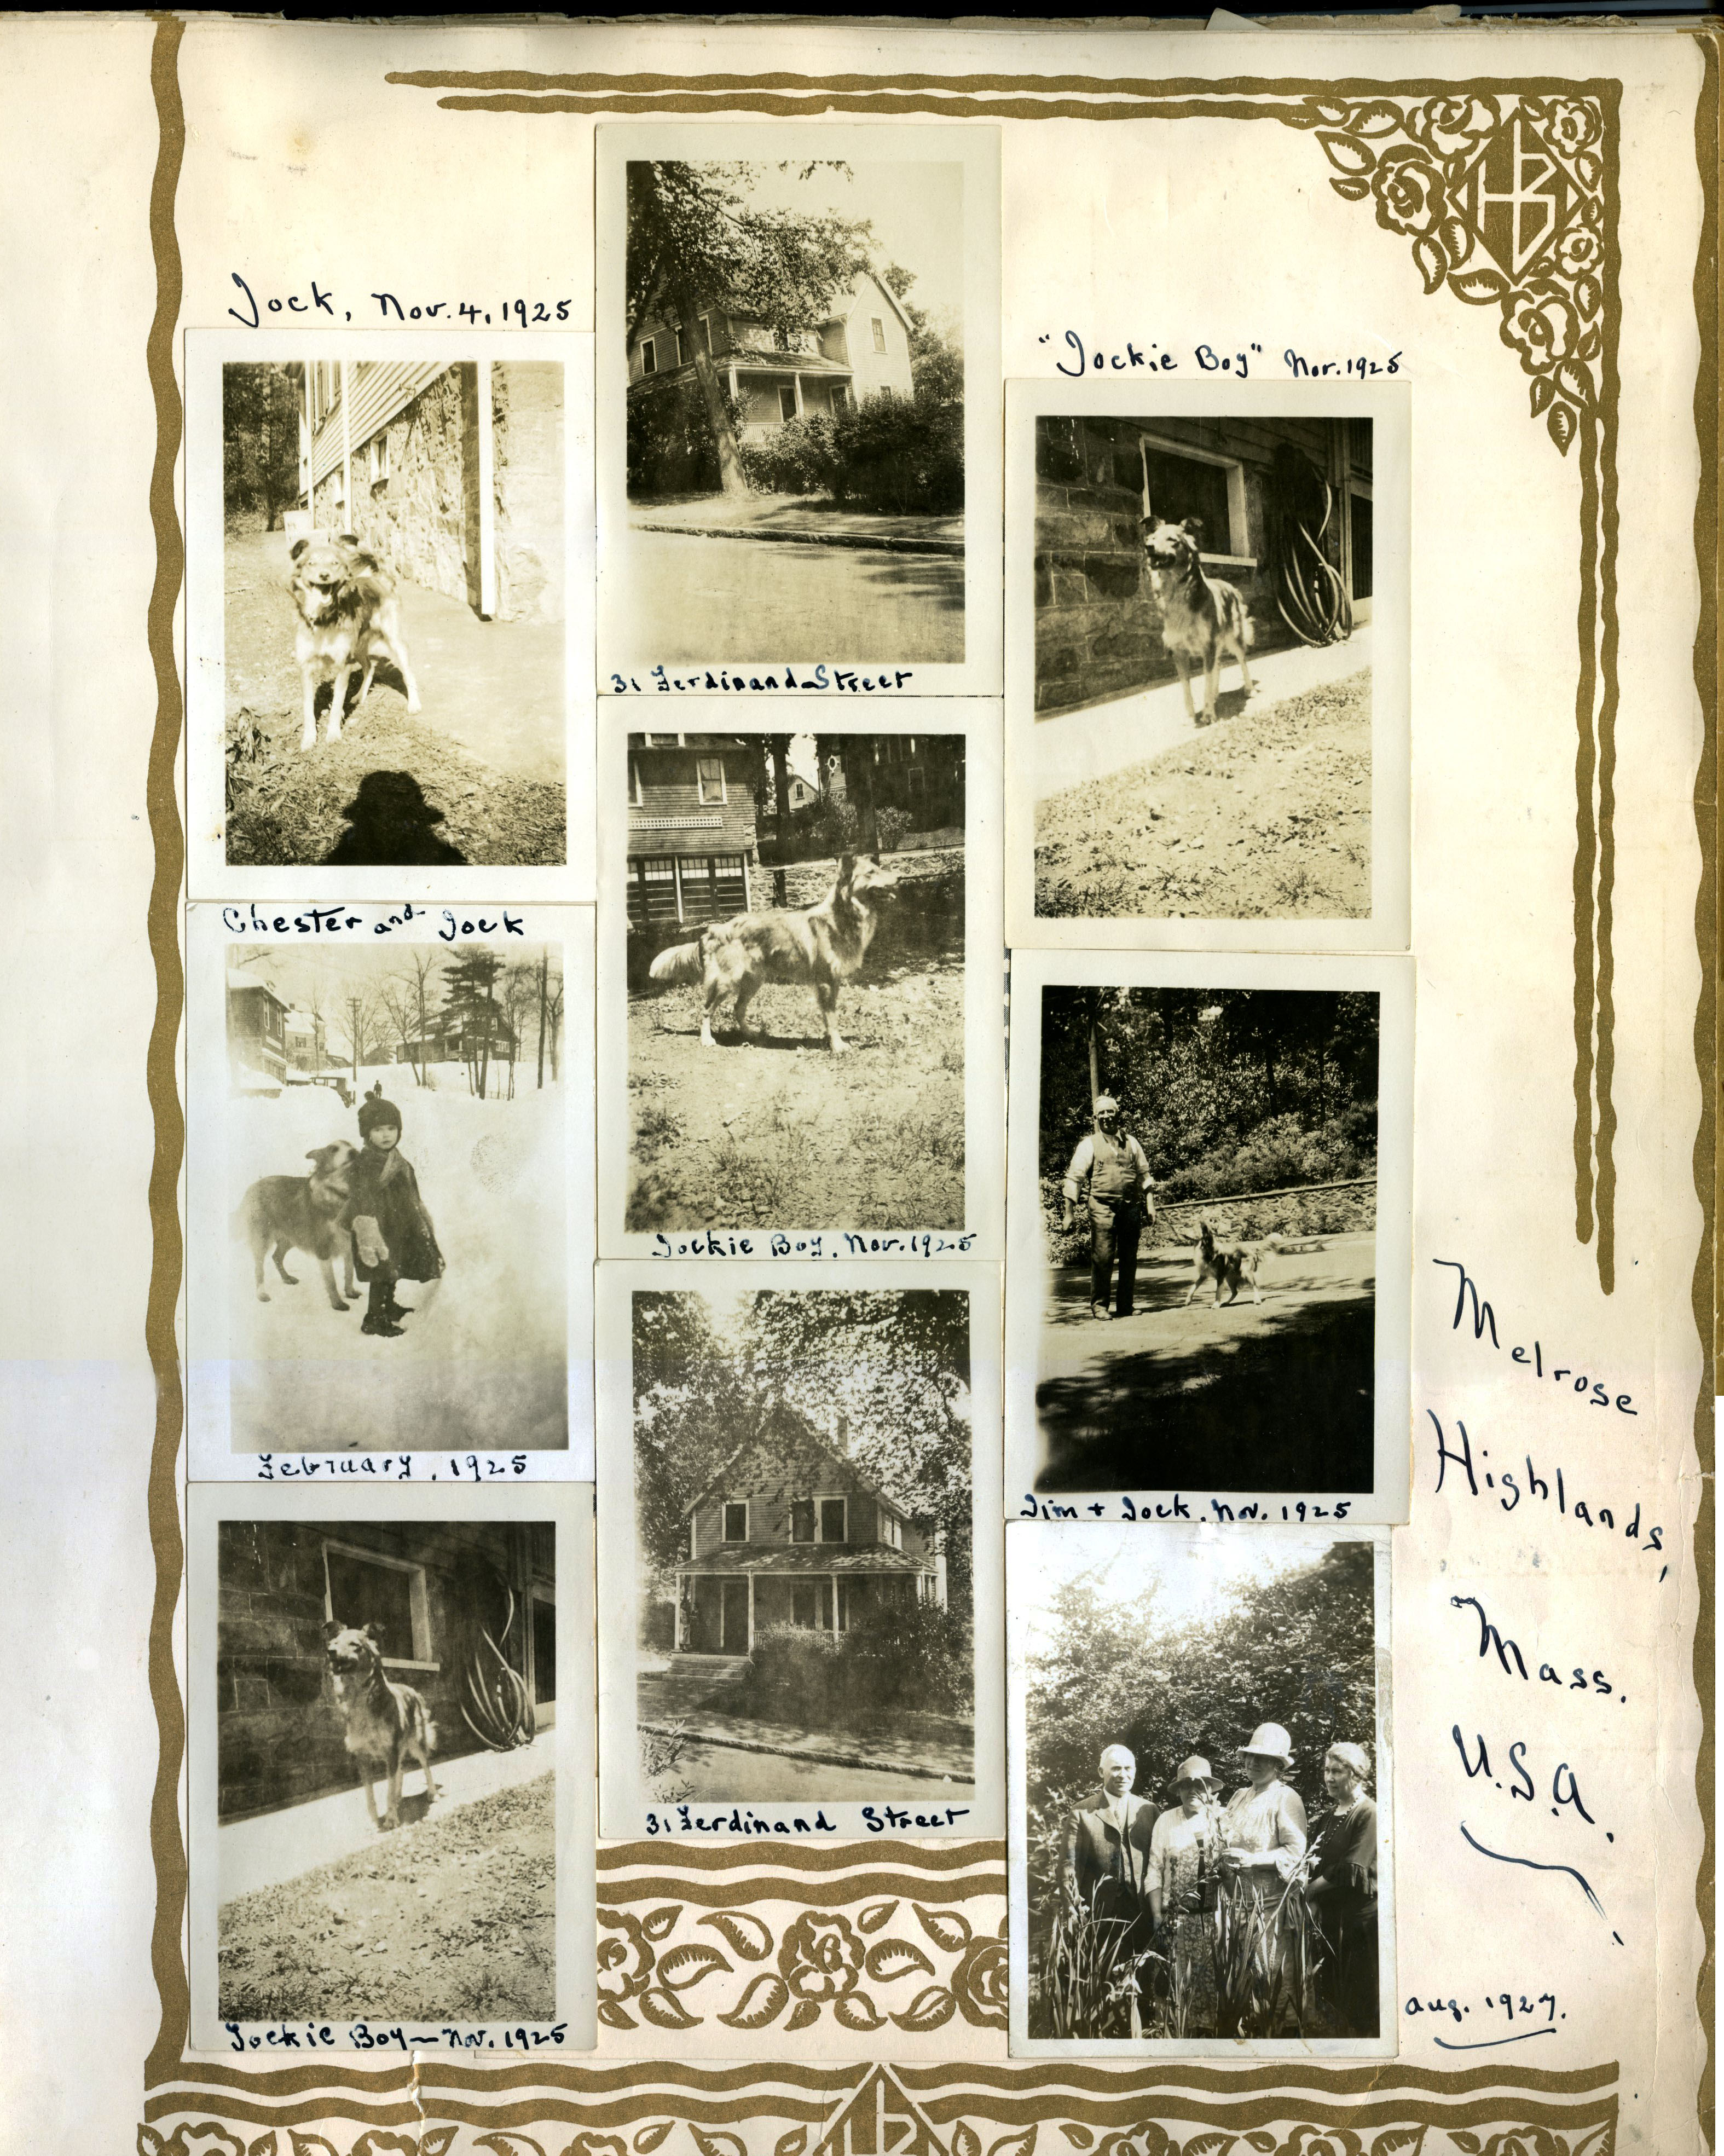 Jock, Nov. 4, 1925
31 Ferdinand Street
"Jockie Boy" Nov. 1925
Chester and Jock
February, 1925
Jockie Boy, Nov. 1925
Jim + Jock, Nov. 1925
Jockie Boy — Nov. 1925
31 Ferdinand Street
Melrose
Highlands,
Mass.
U.S.A.
Aug. 1927.